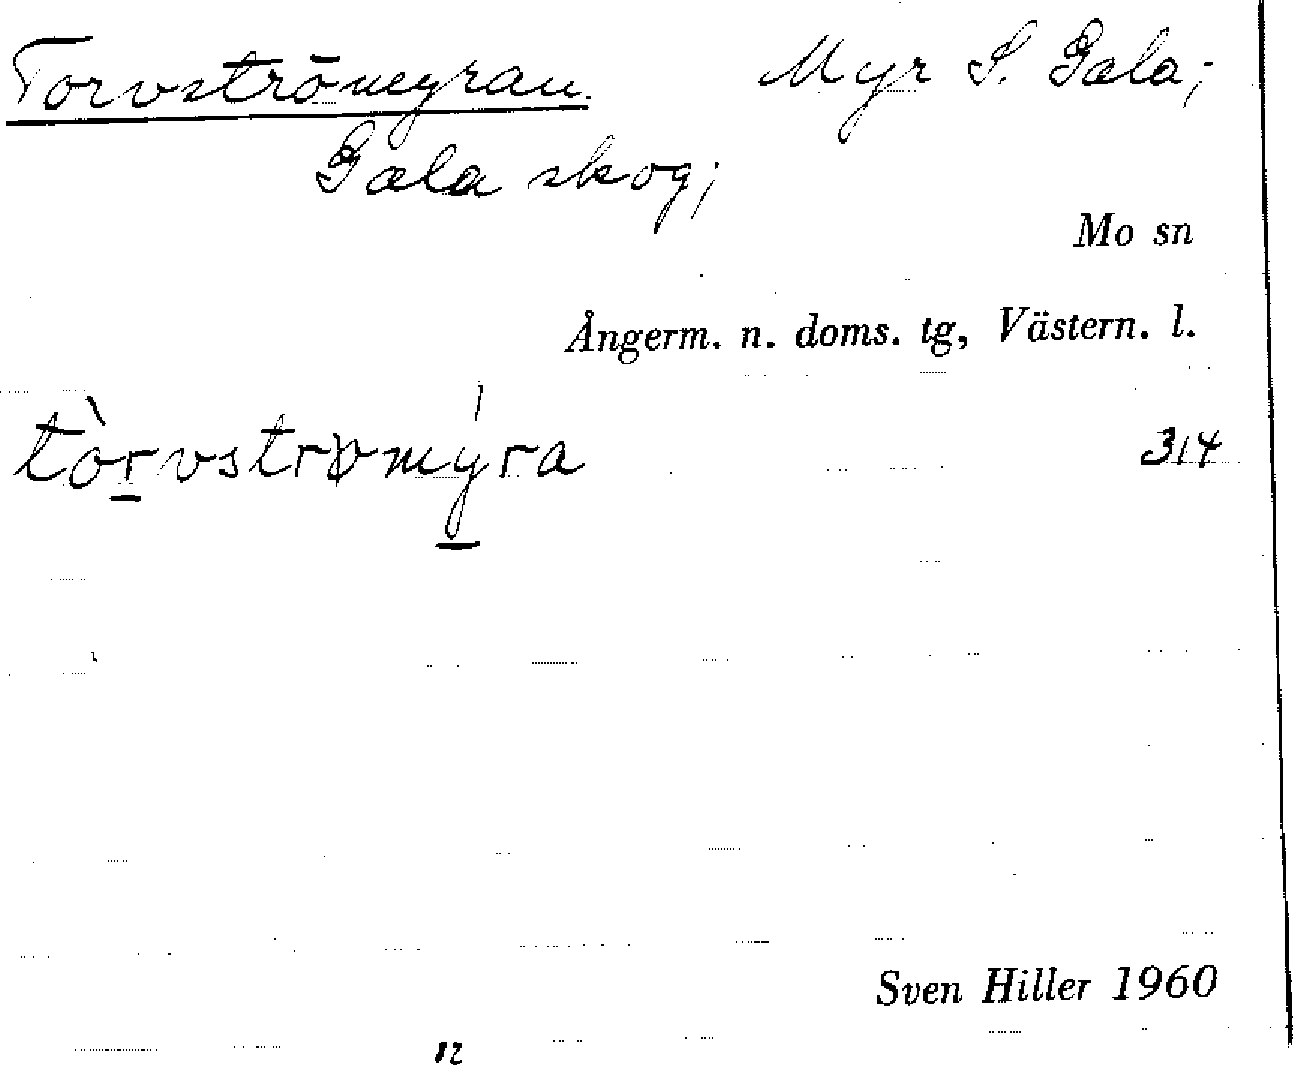 Torvströmyran. Myr S. Gala;
Gala skog;
Mo sn
Ångerm. n. doms. tg, Västern. l.
tòrvstrømýra 314
Sven Hiller 1960
12